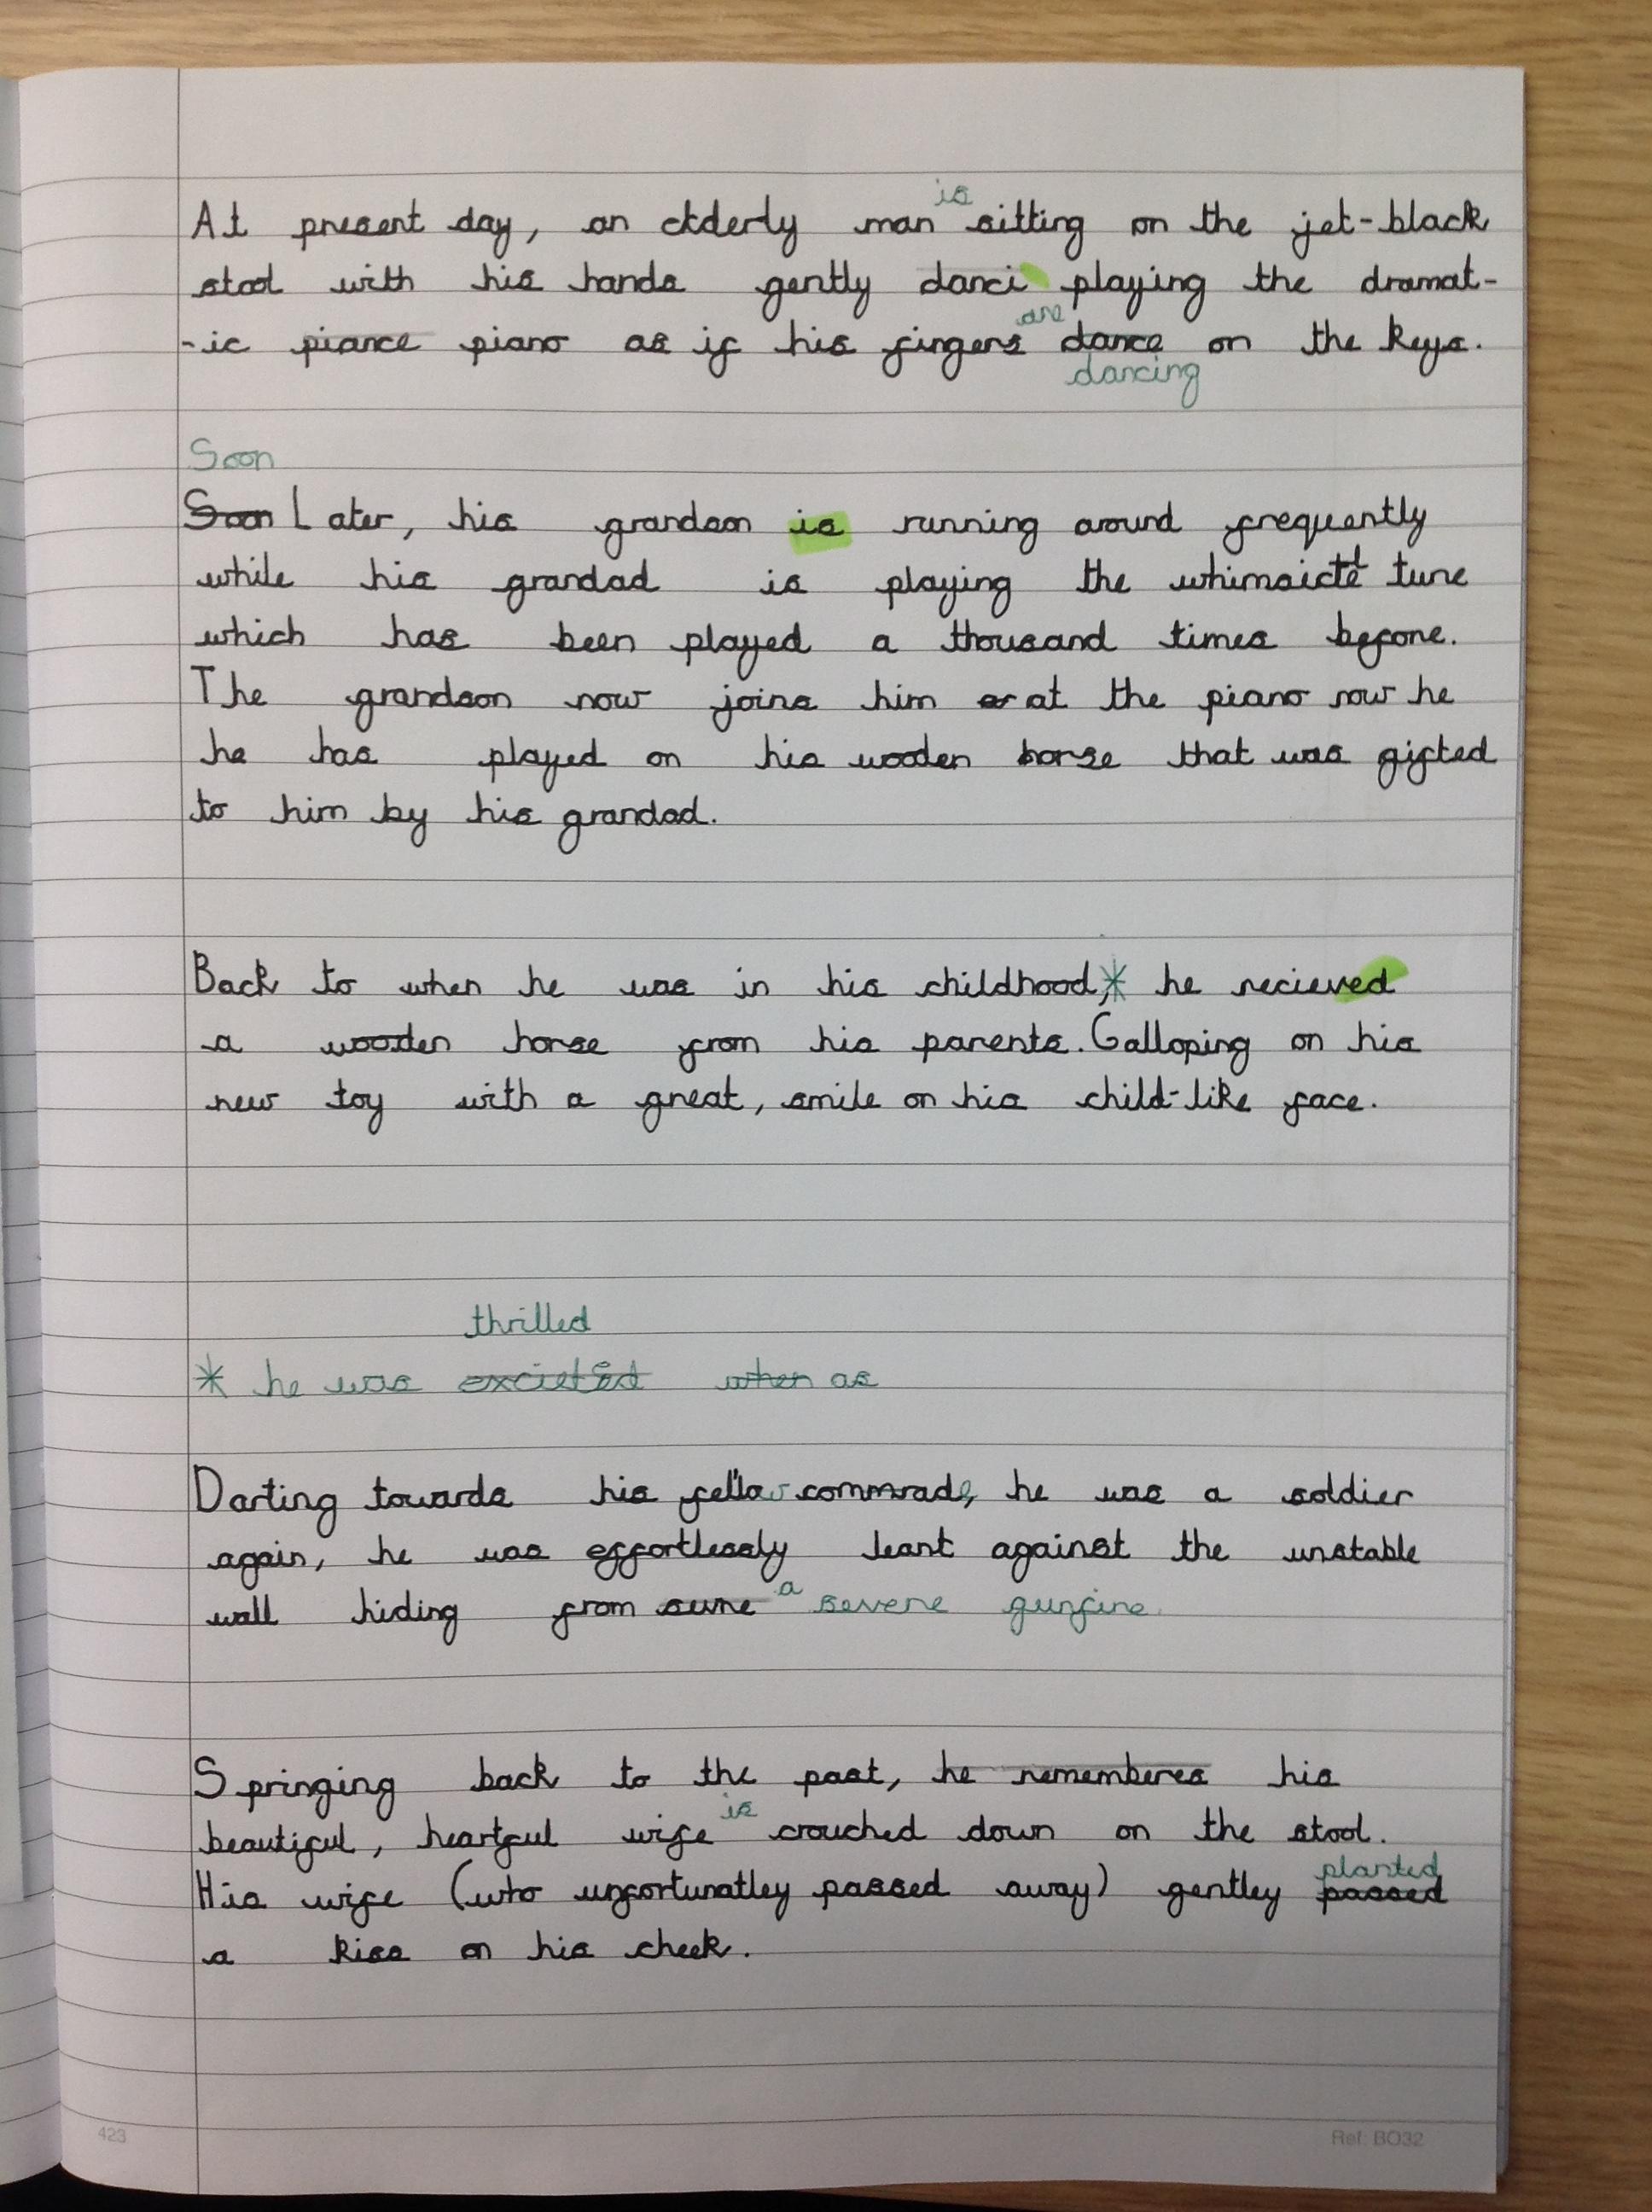 is
At present day, an elderly man sitting on the jet-black
stool with his hands gently danci playing the dramat-
are
-ic piance piano as if his fingers dance on the keys.
dancing
Soon
Soon Later, his grandson is running around frequently
while his grandad is playing the whimsictl tune
which has been played a thousand times before.
The grandson now joins him or at the piano now he
he has played on his wooden horse that was gifted
to him by his grandad.
Back to when he was in his childhood,* he recieved
a wooden horse from his parents. Galloping on his
new toy with a great, smile on his child-like face.
thrilled
* he was excieted when as
Darting towards his fellow commrade, he was a soldier
again, he was effortlessly leant against the unstable
a
wall hiding from sure severe gunfire.
Springing back to the past, he rememberes his
is
beautiful, heartful wife crouched down on the stool.
planted
His wife (who unfortunatley passed away) gentley passed
a kiss on his cheek.
423
Ref: BO32